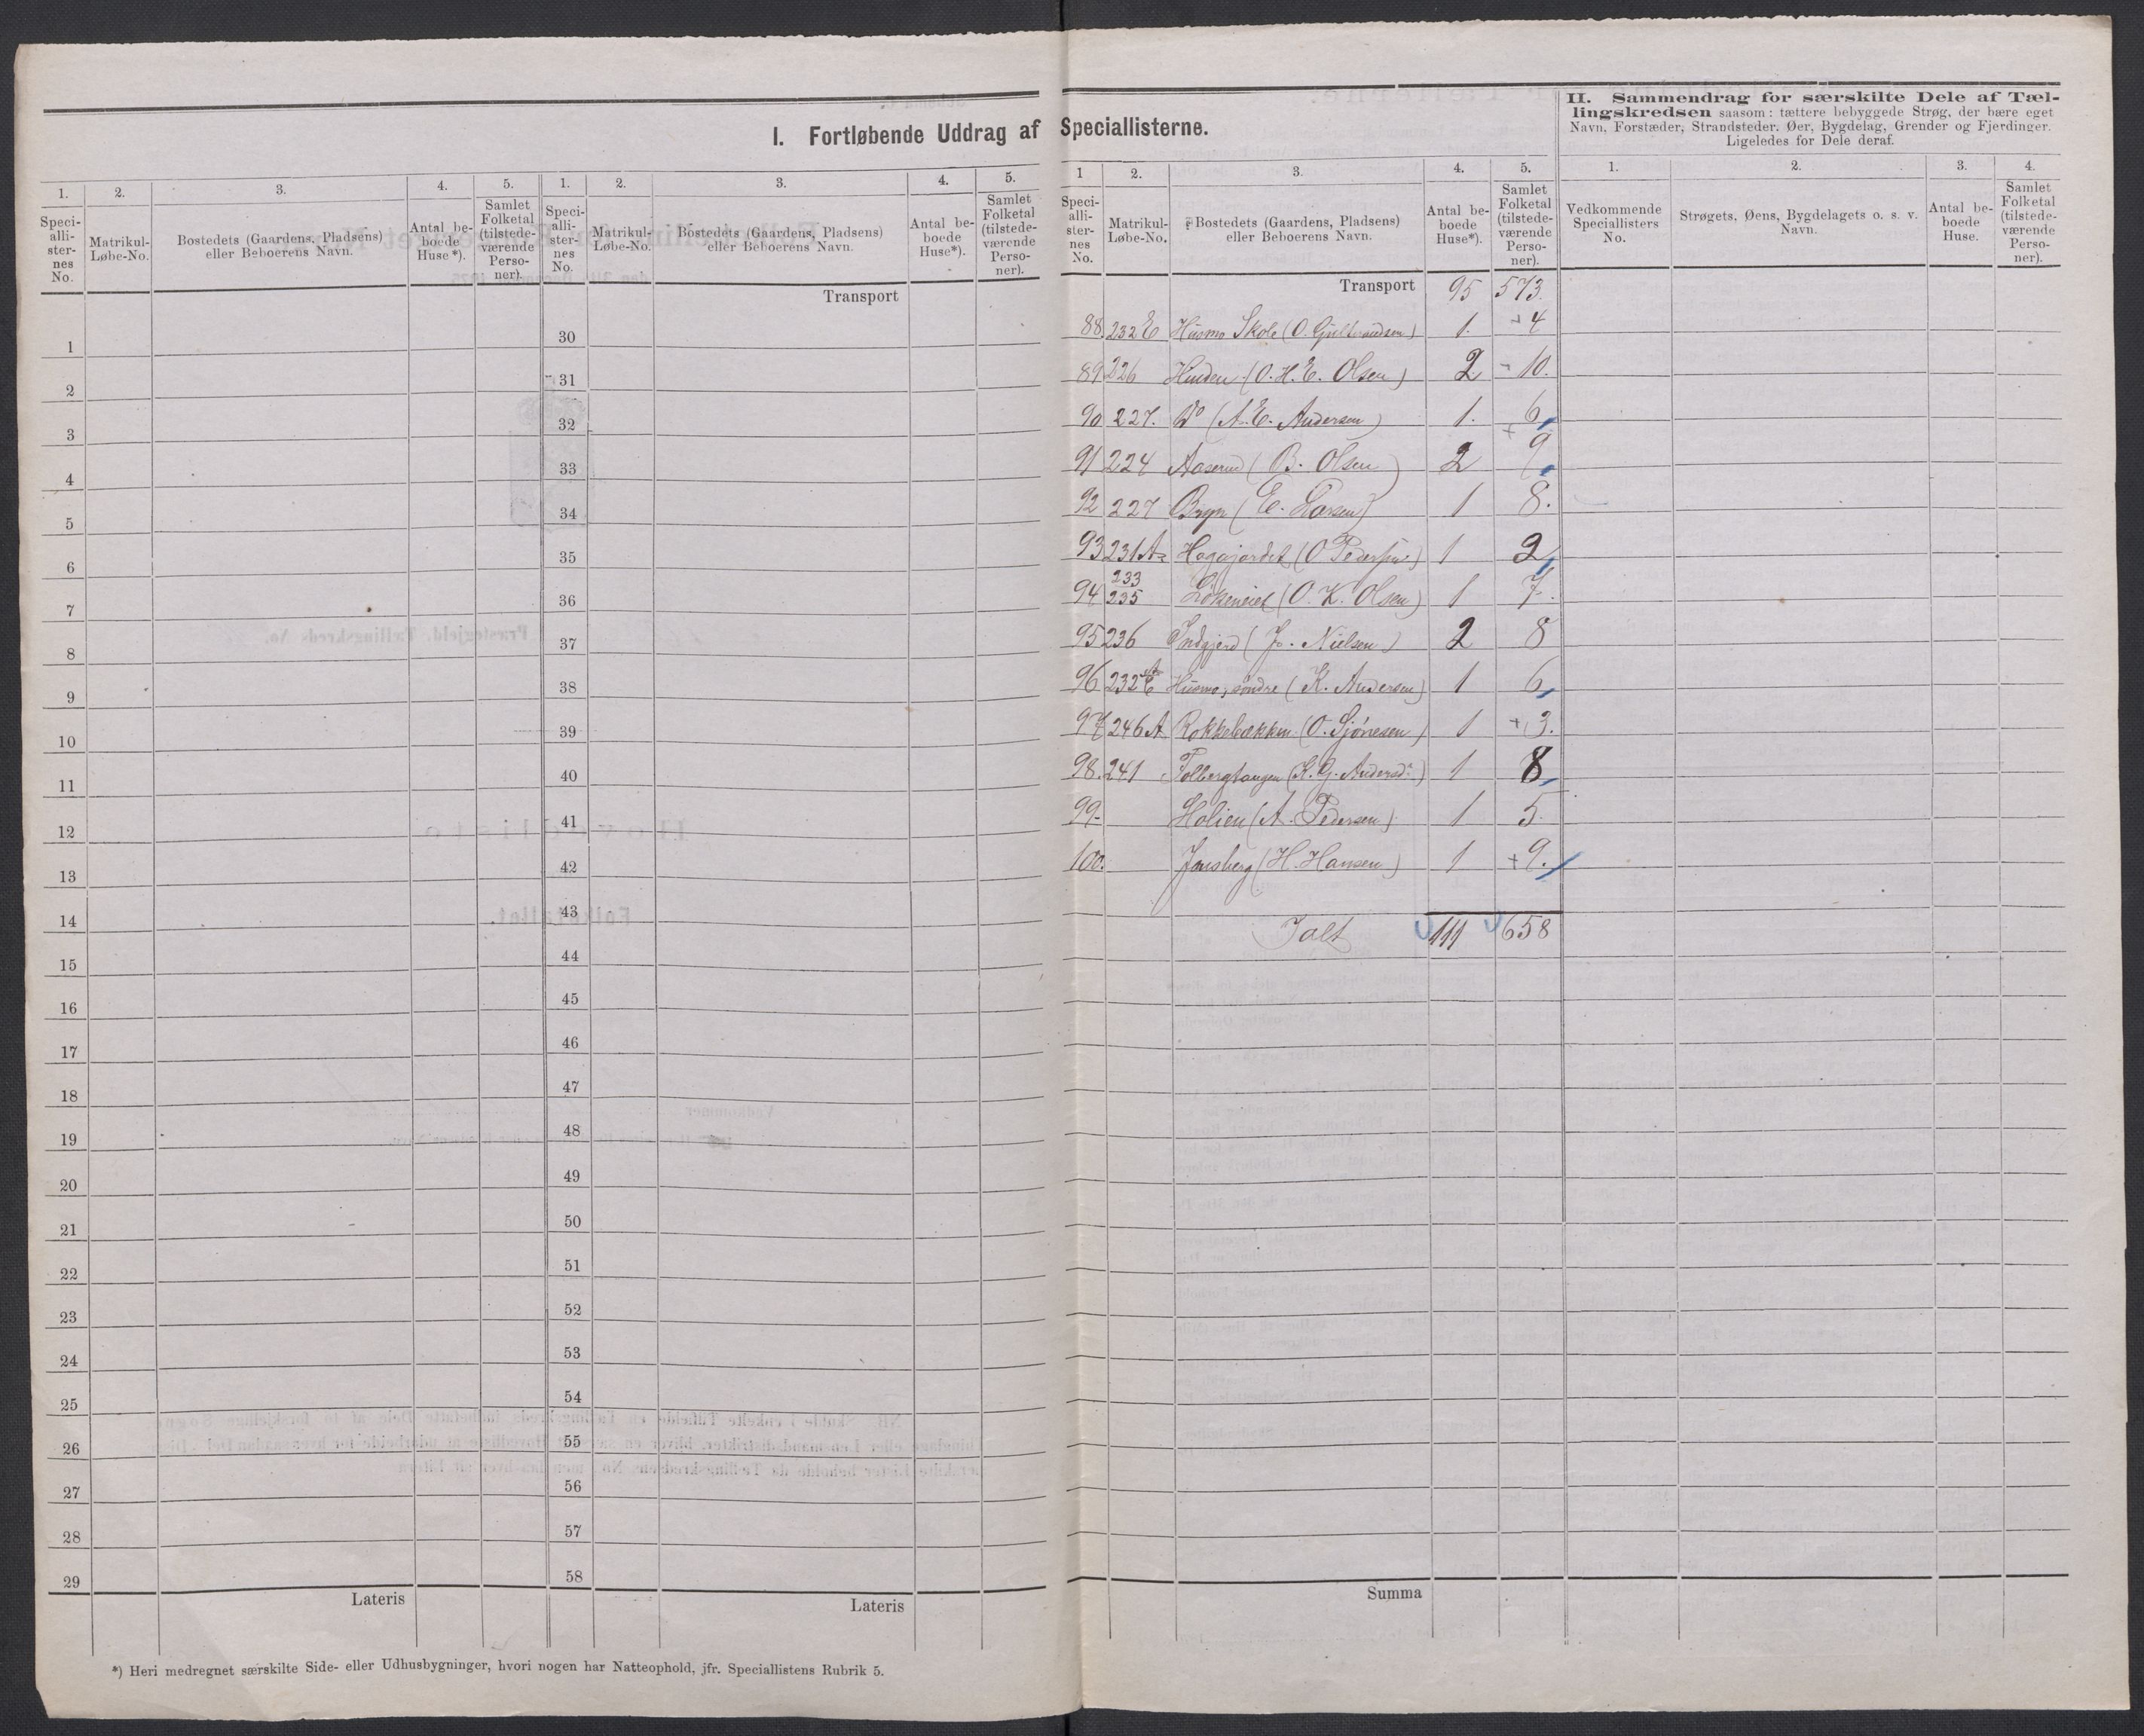 I. Fortløbende Uddrag af Speciallisterne.
II. Sammendrag for særskilte Dele af Tællingskredsen saasom: tættere bebyggede Strøg, der bære eget
Navn, Forstæder, Strandsteder, Øer, Bygdelag, Grender og Fjerdinger.
Ligeledes for Dele deraf.
1. 2. 3. 4. 5. 1. 2. 3. 4. 5.
Speciallisternes No. Matrikul-Løbe-No. Bostedets (Gaardens, Pladsens) eller Beboerens Navn. Antal beboede Huse*). Samlet Folketal (tilstedeværende Personer).
Speciallisternes No. Matrikul-Løbe-No. Bostedets (Gaardens, Pladsens) eller Beboerens Navn. Antal beboede Huse*). Samlet Folketal (tilstedeværende Personer).
Transport
1 30
2 31
3 32
4 33
5 34
6 35
7 36
8 37
9 38
10 39
11 40
12 41
13 42
14 43
15 44
16 45
17 46
18 47
19 48
20 49
21 50
22 51
23 52
24 53
25 54
26 55
27 56
28 57
29 58
Lateris Lateris
*) Heri medregnet særskilte Side- eller Udhusbygninger, hvori nogen har Natteophold, jfr. Speciallistens Rubrik 5.
1 2. 3. 4. 5.
Speciallisternes No. Matrikul-Løbe-No. Bostedets (Gaardens, Pladsens) eller Beboerens Navn. Antal beboede Huse*). Samlet Folketal (tilstedeværende Personer).
Transport 95 573.
88. 232 E Husmo Skole (O. Gulbrandsen) 1. 4
89 226 Hinden (O. H. E. Olsen) 2 10.
90 227. Do (A. E. Andersen) 1. 6
91 224 Aaserud (B. Olsen) 2 9
92 227 Bryn (E. Larsen) 1 8.
93 231 A Hagajordet (O Pedersen) 1 2
94 233 235 (O. K. Olsen) 1 7.
95 236 Indgjerd (J. Nielsen) 2 8
96 232 Husmo, søndre (K. Andersen) 1 6
97 246 A Rokkebækken (O. Sjønesen) 1 + 3.
98. 241 Tolbergtangen (K. G. Andersdr) 1 8
99- Holien (A. Pedersen) 1 5.
100. Jonsberg (H. Hansen) 1 + 9.
Ialt 111 658
Summa
1. 2. 3. 4.
Vedkommende Speciallisters No. Strøgets, Øens, Bygdelagets o. s. v. Navn. Antal beboede Huse. Samlet Folketal (tilstedeværende Personer).